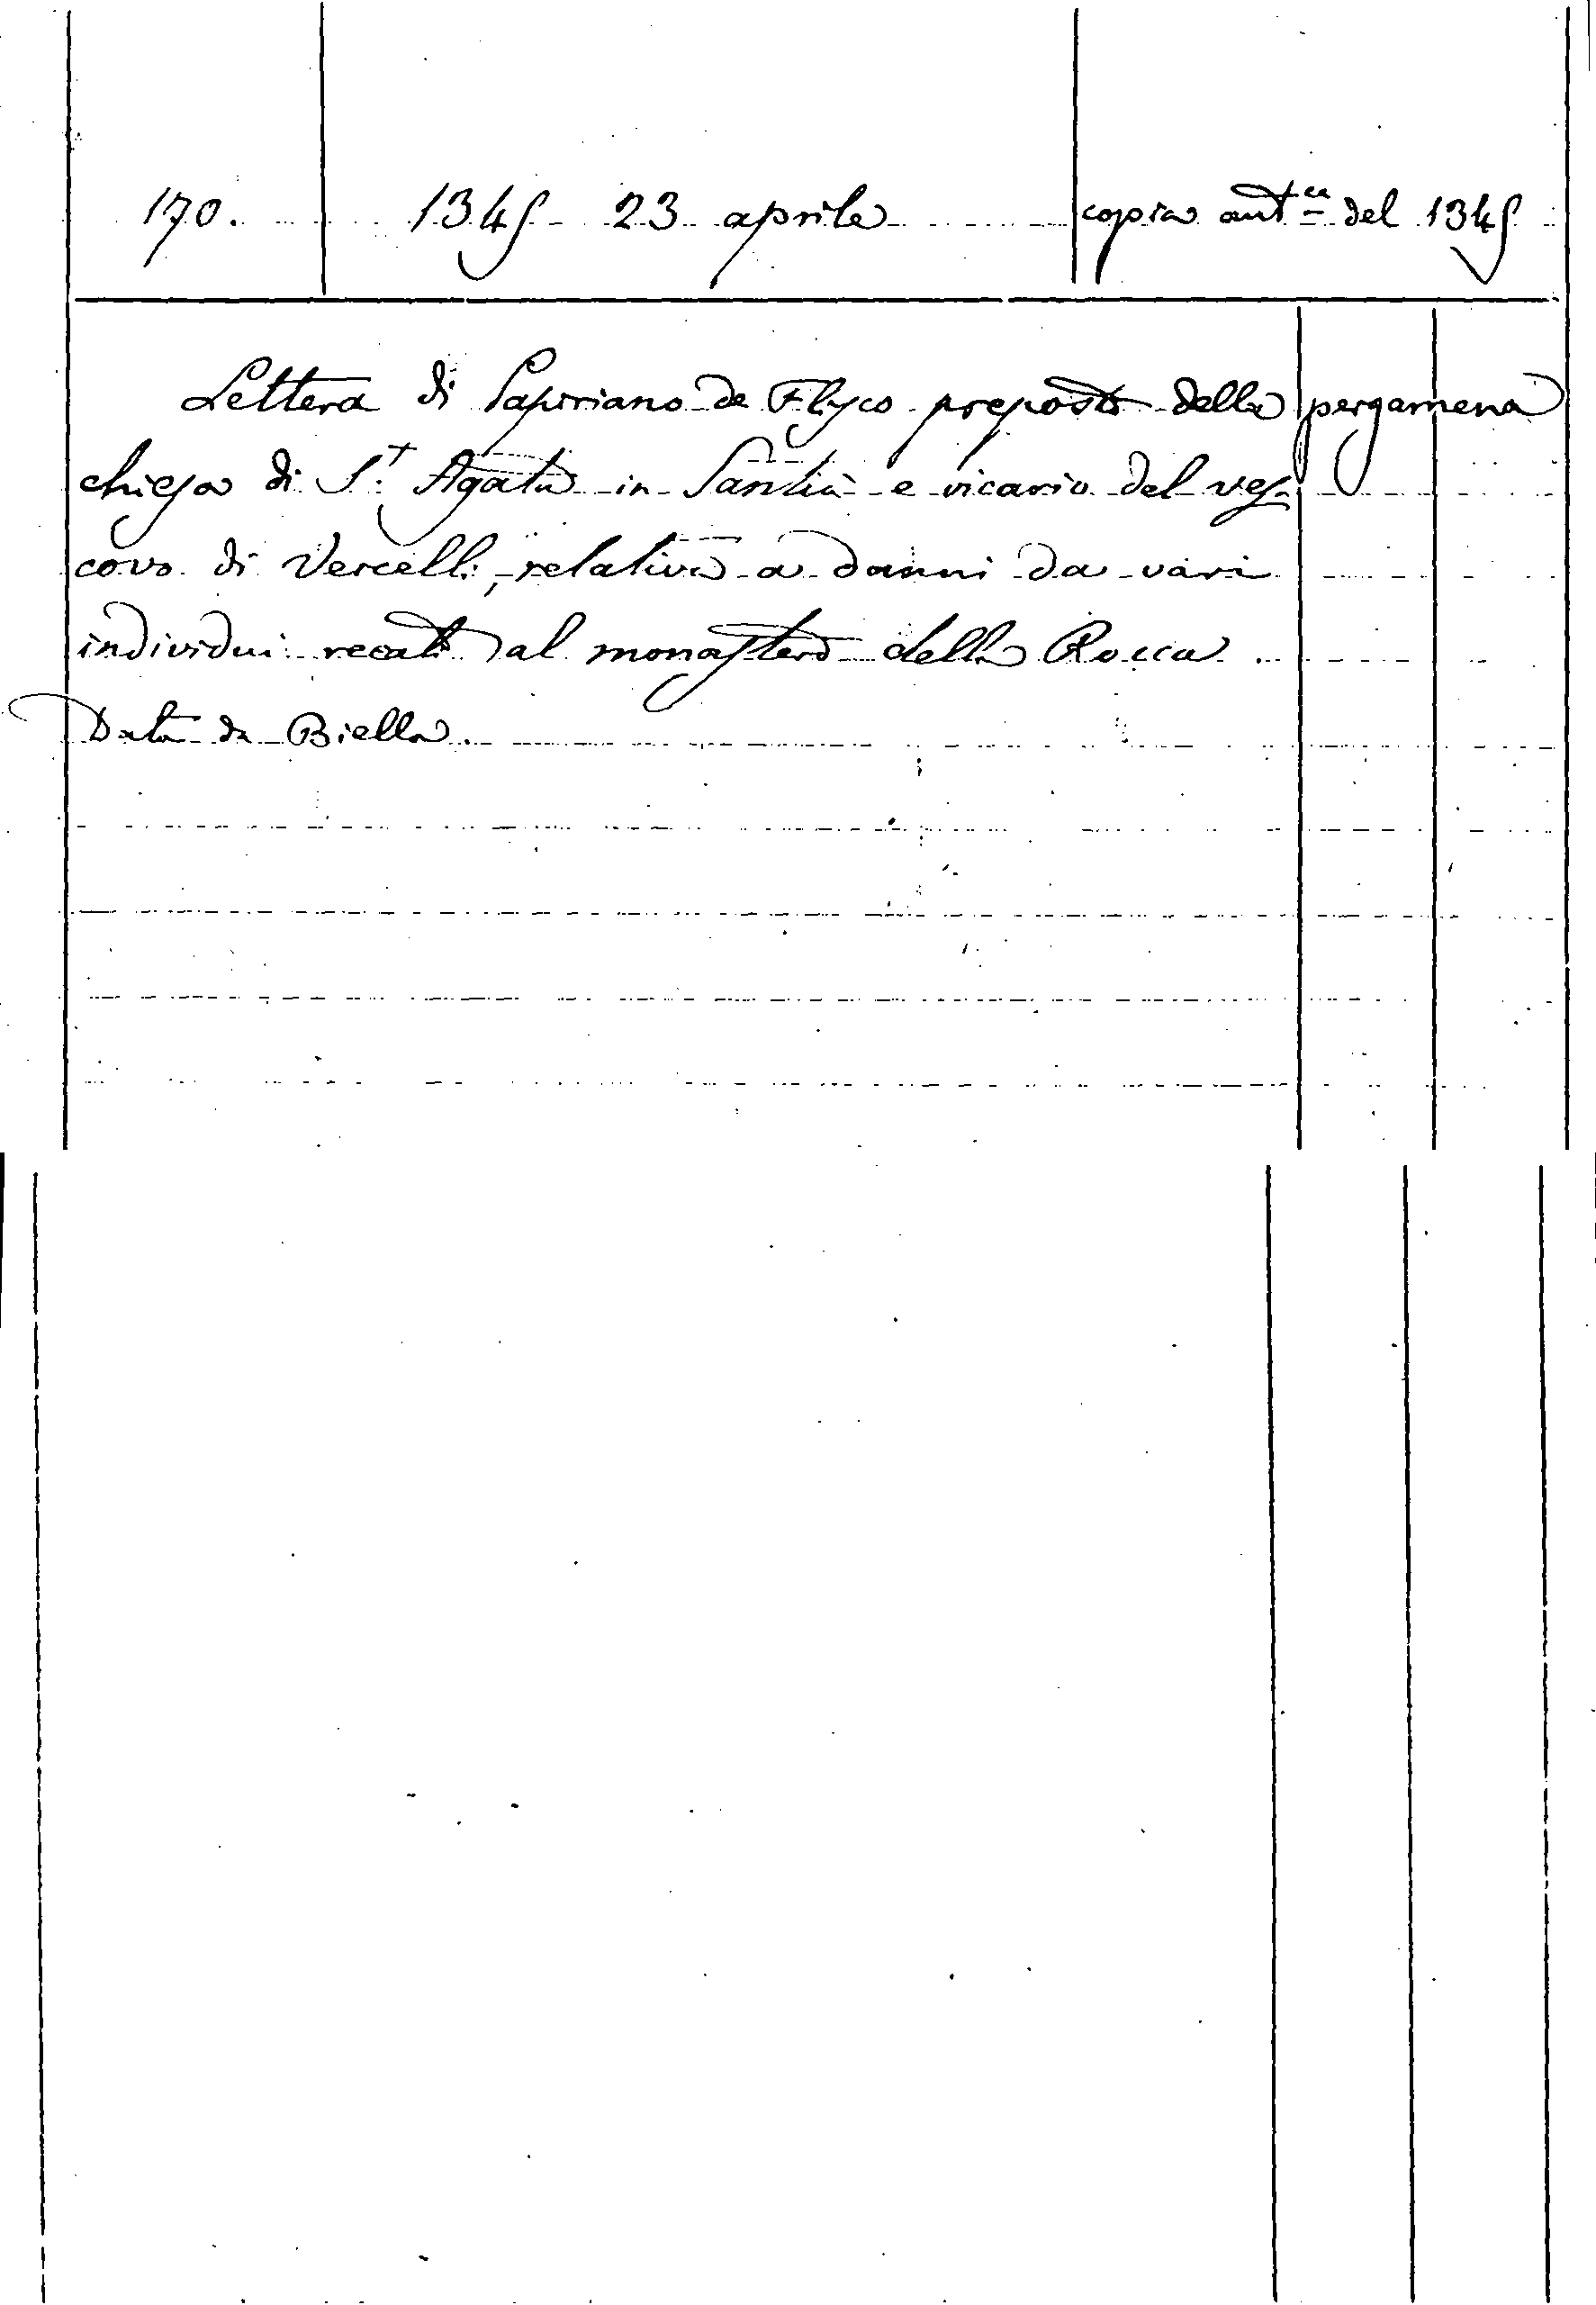 170. 1345 23 aprile copia aut.ca del 1345
Lettera di Papiriano de Flyco preposto della pergamena
chiesa di S.t Agata in Santià e vicario del ves-
covo di Vercelli, relativa a danni da vari
individui recati al monastero della Rocca.
Data da Biella.